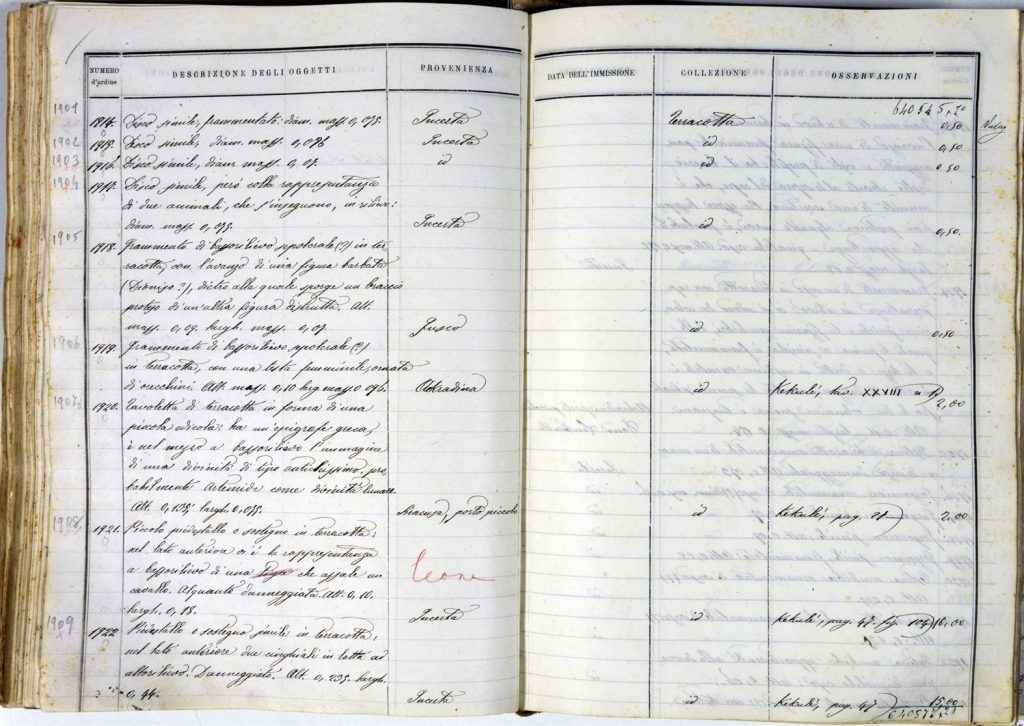 NUMERO d'ordine
DESCRIZIONE DEGLI OGGETTI
PROVENIENZA
DATA DELL'IMMISSIONE
COLLEZIONE
OSSERVAZIONI
640545,20
1901
1914. Disco simile, frammentato: diam. mass. 0,095. Incerta Terracotta 0,50
1902
1915. Disco simile, diam. mass. 0,076 Incerta id 0,50
1903
1916. Disco simile, diam. mass. 0,07. id id 0,50
1904
1917. Disco simile, però colla rappresentanza
di due animali, che s'inseguono, in rilievo:
diam. mass. 0,095. Incerta id 0,50.
1905
1918. Frammento di bassorilievo sepolcrale (?) in ter
racotta, con l'avanzo di una figura barbata
(Dioniso?), dietro alla quale sporge un braccio
proteso di un'altra figura distrutta. Alt.
mass. 0,09. largh. mass. 0,07. Fusco id 0,50
1906
1919. Frammento di bassorilievo sepolcrale (?)
in terracotta, con una testa femminile, ornata
di orecchini. Alt. mass. 0,10 larg. mass. 0,096. Acradina id Kekulé, tav. XXVIII 2,00
1907
1920. Tavoletta di terracotta in forma di una
piccola edicola: ha un'epigrafe greca,
e nel mezzo a bassorilievo l'immagine
di una divinità di tipo antichissimo, pro
babilmente Artemide come divinità lunare.
Alt. 0,135; largh. 0,095. Siracusa, porto piccolo id Kekulé, pag. 2,00
1908
1921. Piccolo piedistallo o sostegno in terracotta:
nel lato anteriore vi è la rappresentanza
a bassorilievo di una tigre che assale un leone
cavallo. Alquanto danneggiata. Alt. 0,10.
largh. 0,18. Incerta id Kekulé, pag. 47. 10,00
1909
1922 Piedistallo o sostegno simile in terracotta;
nel lato anteriore due cinghiali in lotta ad
altorilievo. Danneggiato. Alt. 0,235. largh.
0,44. Incerta id Kekulé, pag. 47 15,00